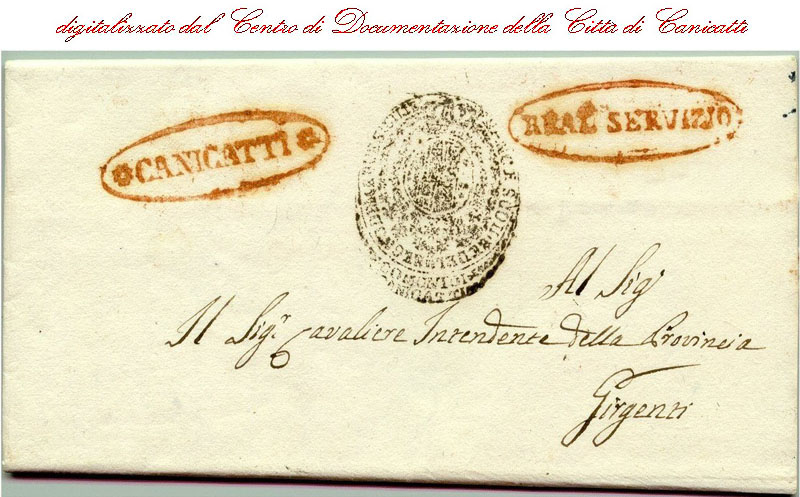 digitalizzato dal Centro di Documentazione della Città di Canicattì
CANICATTI
REAL SERVIZIO
Al Sigr
Il Sigr Cavaliere Intendente della Provincia
Girgenti